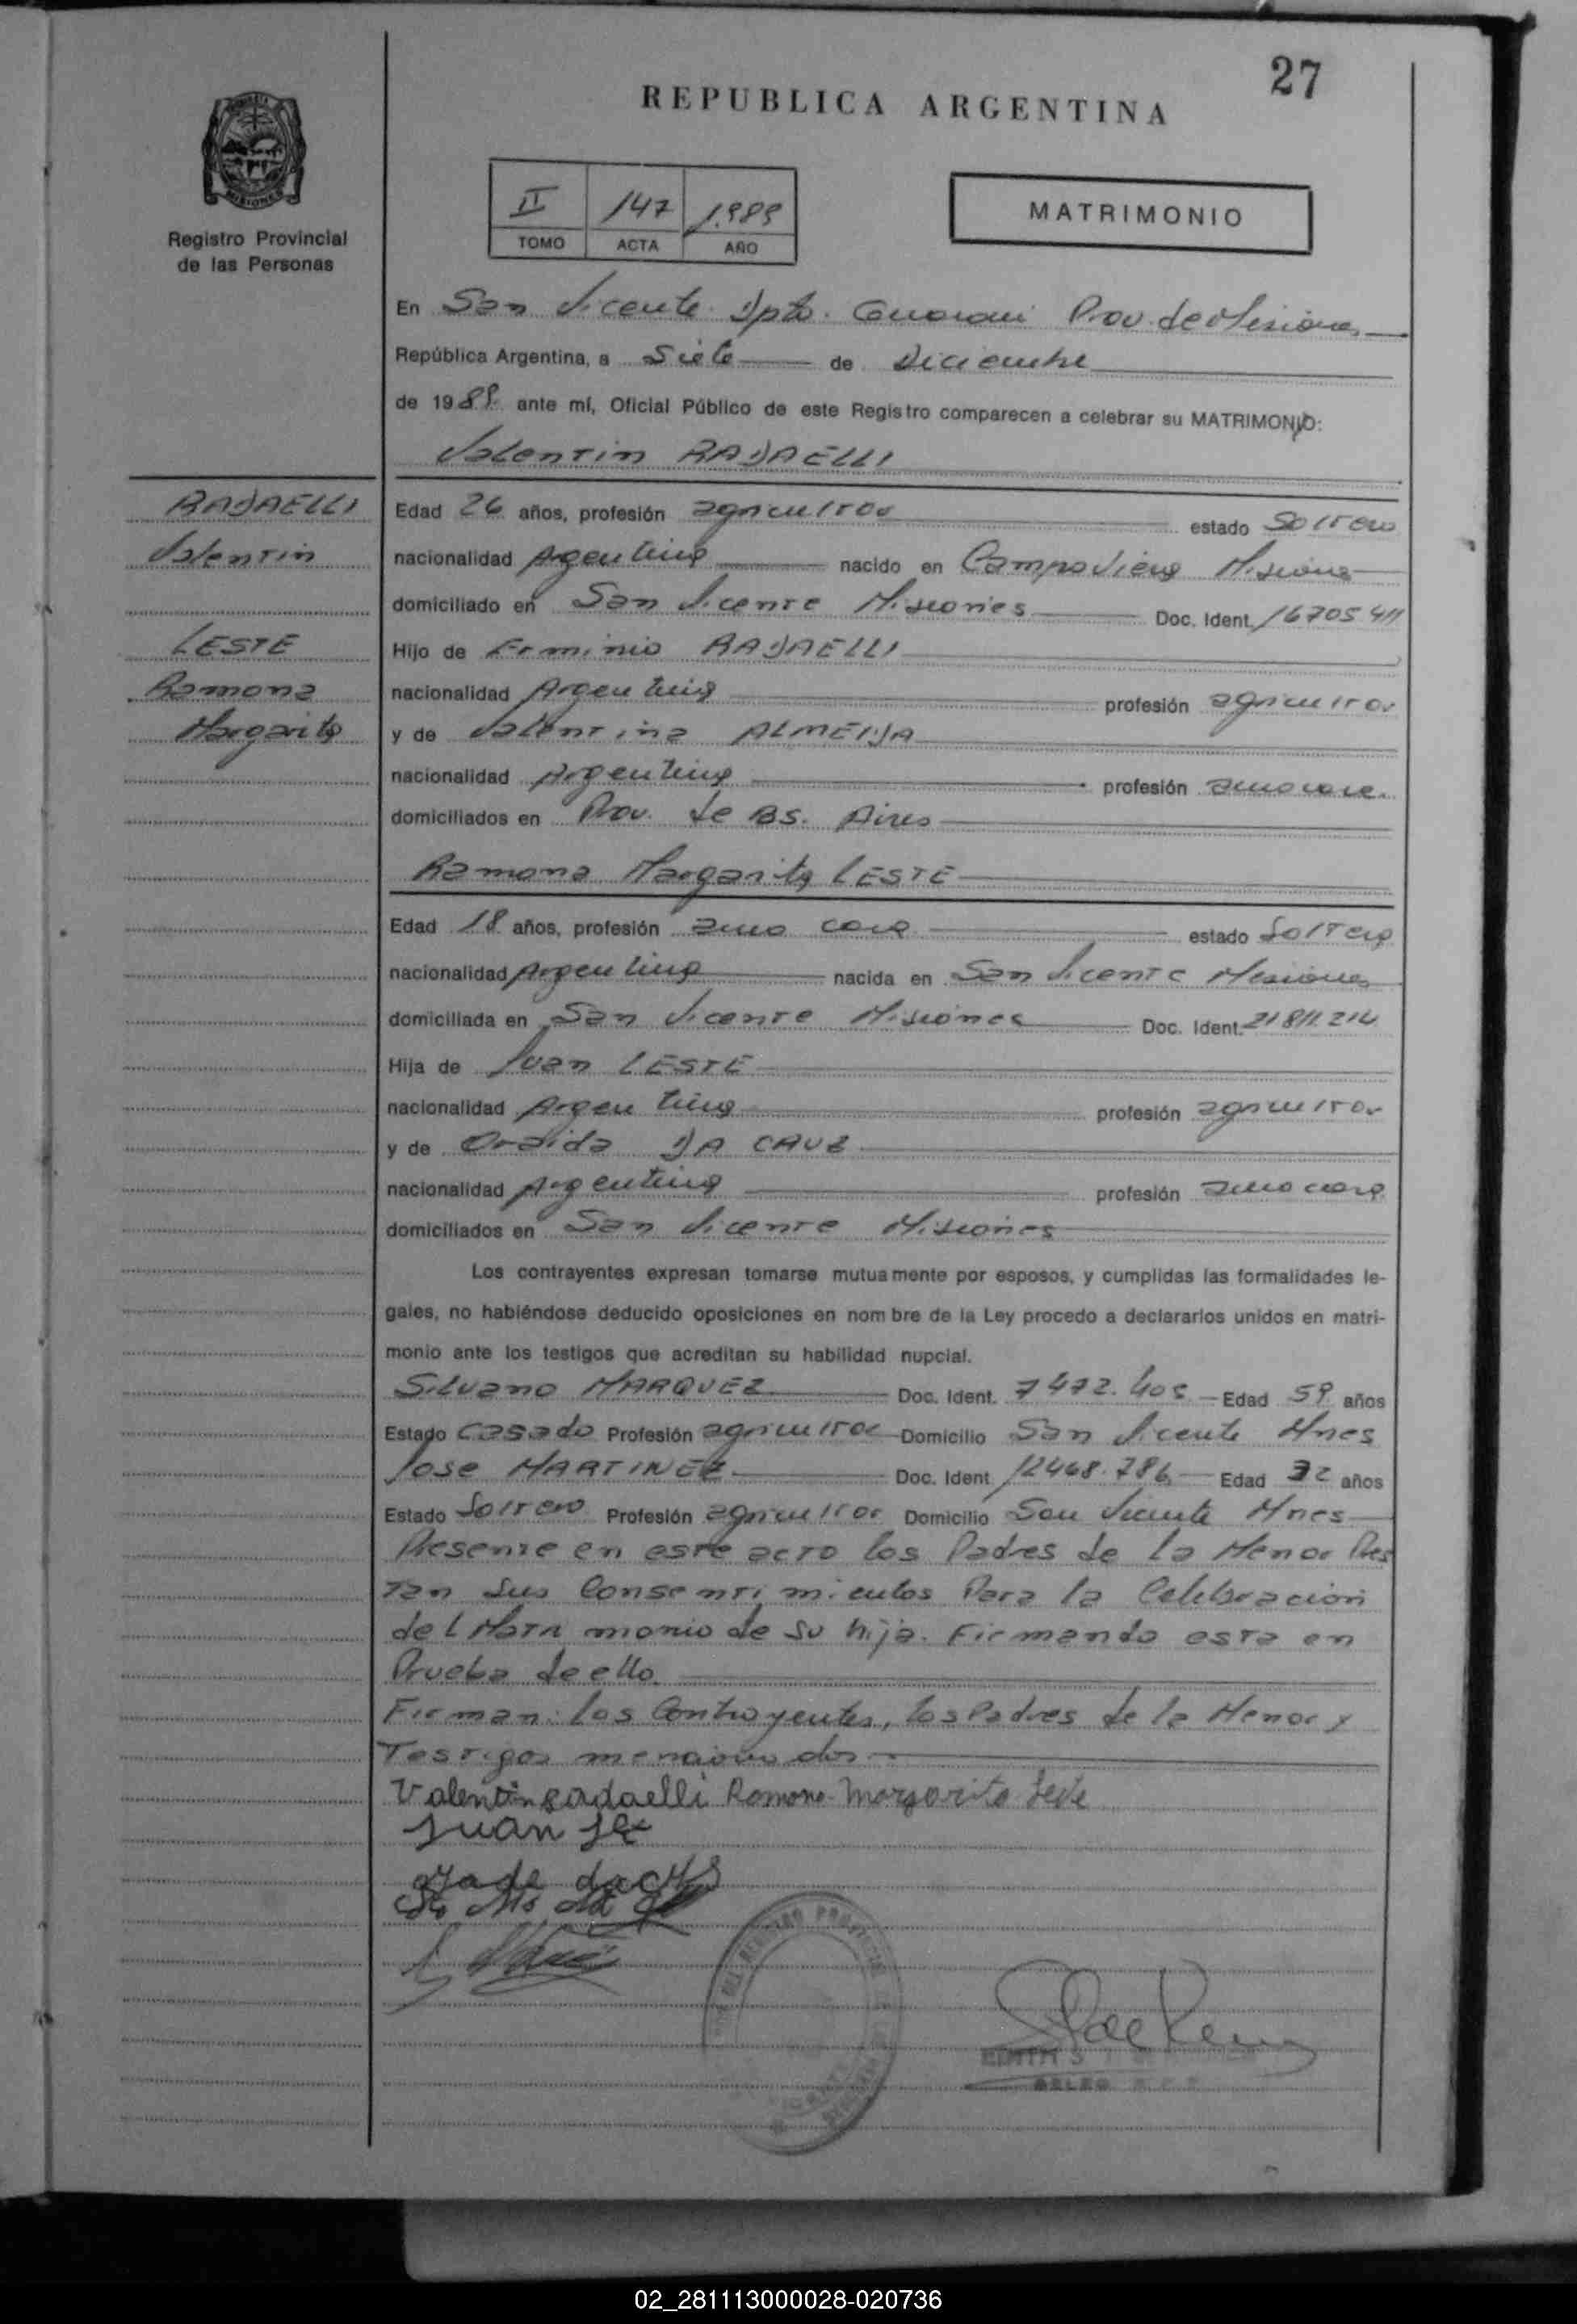 27
REPUBLICA ARGENTINA
MISIONES
Registro Provincial
de las Personas
II 147 1.989
TOMO ACTA AÑO
MATRIMONIO
En San Vicente Dpto. Guarani Prov. de Misiones
República Argentina, a Siete de Diciembre
de 1989 ante mí, Oficial Público de este Registro comparecen a celebrar su MATRIMONIO:
Valentin RADAELLI
RADAELLI
Valentin
LESTE
Ramona
Margarita
Edad 26 años, profesión agricultor estado Soltero
nacionalidad Argentina nacido en Campo Viera Misiones
domiciliado en San Vicente Misiones Doc. Ident. 16705411
Hijo de Erminio RADAELLI
nacionalidad Argentina profesión agricultor
y de Valentina ALMEIDA
nacionalidad Argentina profesión ama casa
domiciliados en Prov. de BS. Aires
Ramona Margarita LESTE
Edad 18 años, profesión ama casa estado Soltera
nacionalidad Argentina nacida en San Vicente Misiones
domiciliada en San Vicente Misiones Doc. Ident. 21811.214
Hija de Juan LESTE
nacionalidad Argentina profesión agricultor
y de DA CRUZ
nacionalidad Argentina profesión ama casa
domiciliados en San Vicente Misiones
Los contrayentes expresan tomarse mutuamente por esposos, y cumplidas las formalidades le-
gales, no habiéndose deducido oposiciones en nombre de la Ley procedo a declararlos unidos en matri-
monio ante los testigos que acreditan su habilidad nupcial.
Silvano MARQUEZ Doc. Ident. 7472.405 Edad 59 años
Estado Casado Profesión agricultor Domicilio San Vicente Mnes
Jose MARTINEZ Doc. Ident 12468.786 Edad 32 años
Estado Soltero Profesión agricultor Domicilio San Vicente Mnes
Presente en este acto los Padres de la Menor Pres
tan sus Consentimientos Para la Celebracion
del Matrimonio de su hija. Firmando esta en
Prueba de ello.
Firman: los Contrayentes, los Padres de la Menor y
Testigos mencionados.
Valentin Radaelli Ramona Margarita Leste
Juan
EDITH S
DELEG
02_281113000028-020736